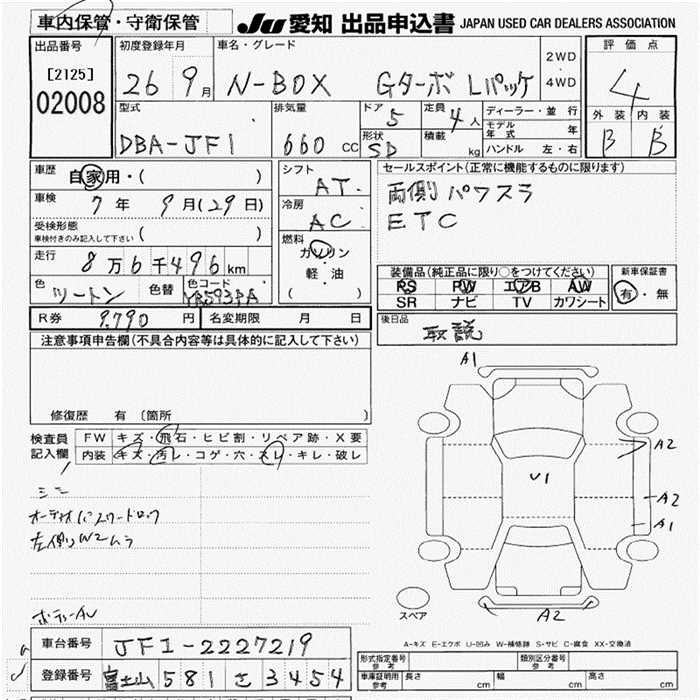 車内保管・守衛保管 JU 愛知 出品申込書 JAPAN USED CAR DEALERS ASSOCIATION
出品番号 初度登録年月 車名・グレード 評価点
[2125] 26 9月 N-BOX Gターボ Lパッケ 2WD 4WD 4
02008 型式 排気量 ドア 5 定員 4人 ディーラー・並行 外装 内装
DBA-JF1 660cc 形状 SD 積載 kg モデル年式 年 B B
ハンドル 左・右
車歴 自家用・( ) シフト AT セールスポイント(正常に機能するものに限ります)
車検 7年 9月(29日) 冷房 AC 両側パワスラ
受検形態 車検付きのみ記入して下さい ( ) ETC
走行 8万6千496km 燃料 ガソリン 軽・油 ( )
装備品(純正品に限り○をつけてください) 新車保証書
色 ツートン 色替 色コード PS PW エアB AW 有・無
SR ナビ TV カワシート
R券 9,790円 名変期限 月 日 後日品 取説
注意事項申告欄(不具合内容等は具体的に記入して下さい)
修復歴 有 (箇所 )
検査員記入欄 FW キズ・飛石・ヒビ割・リペア跡・X要
内装 キズ・汚レ・コゲ・穴・スレ・キレ・破レ
オーディオパスワードロック
左側W2ムラ
A1
A2
U1
A2
A1
A2
スペア
A-キズ E-エクボ U-凹み W-補修跡 S-サビ C-腐食 XX-交換済
車台番号 JF1-2227219 形式指定番号 参考 類別区分番号 参考
登録番号 富士山 581 さ 3454 車庫証明用 参考 長さ cm 幅 cm 高さ cm